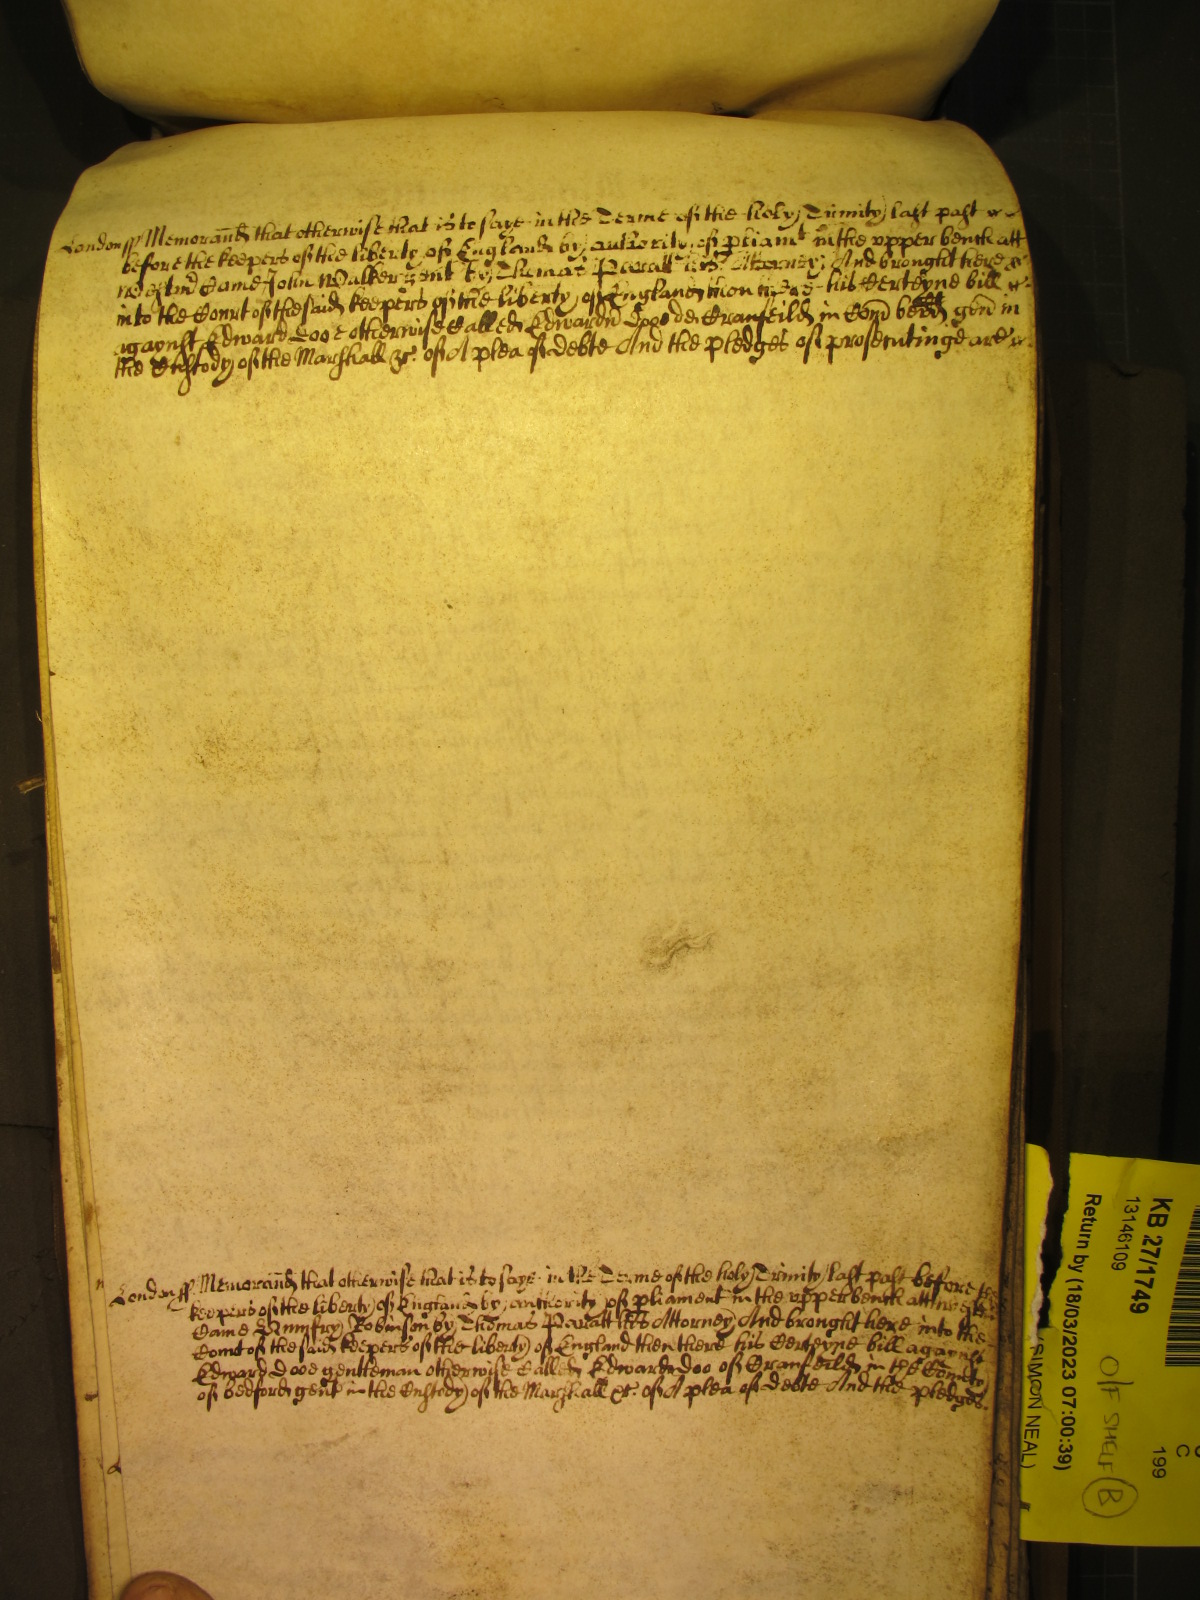 London ss Memorand that otherwise that is to saye in the Terme of the holy Trinity last past
before the keepers of the liberty of England by authority of pliamt in the upper bench att
westmr Came John Walker gent by Thomas Paratt his Attorney And brought here
into the Court of the said keepers of the liberty of England then there his Certeyne bill
agaynst Edward Dooe otherwise Called Edward Doo de Cranfeild in Com Bedd gen in
the Custody of the Marshall &c. of A plea of debte And the pledges of prosecutinge are
London ss Memorand that otherwise that is to saye in the Terme of the holy Trinity last past before the
keepers of the liberty of England by authority of pliament in the upper bench att westm
Came Humfry Robinson by Thomas Paratt his Attorney And brought here into the
Court of the said keepers of the liberty of England then there his Certeyne bill agaynst
Edward Dooe gentleman otherwise Called Edward Doo of Cranfeild in the County
of Bedford gent in the Custody of the Marshall &c. of A plea of debte And the pledges.
KB 27/1749
13146109
Return by (18/03/2023 07:00:39)
(SIMON NEAL)
O/F SHELF B
C
199